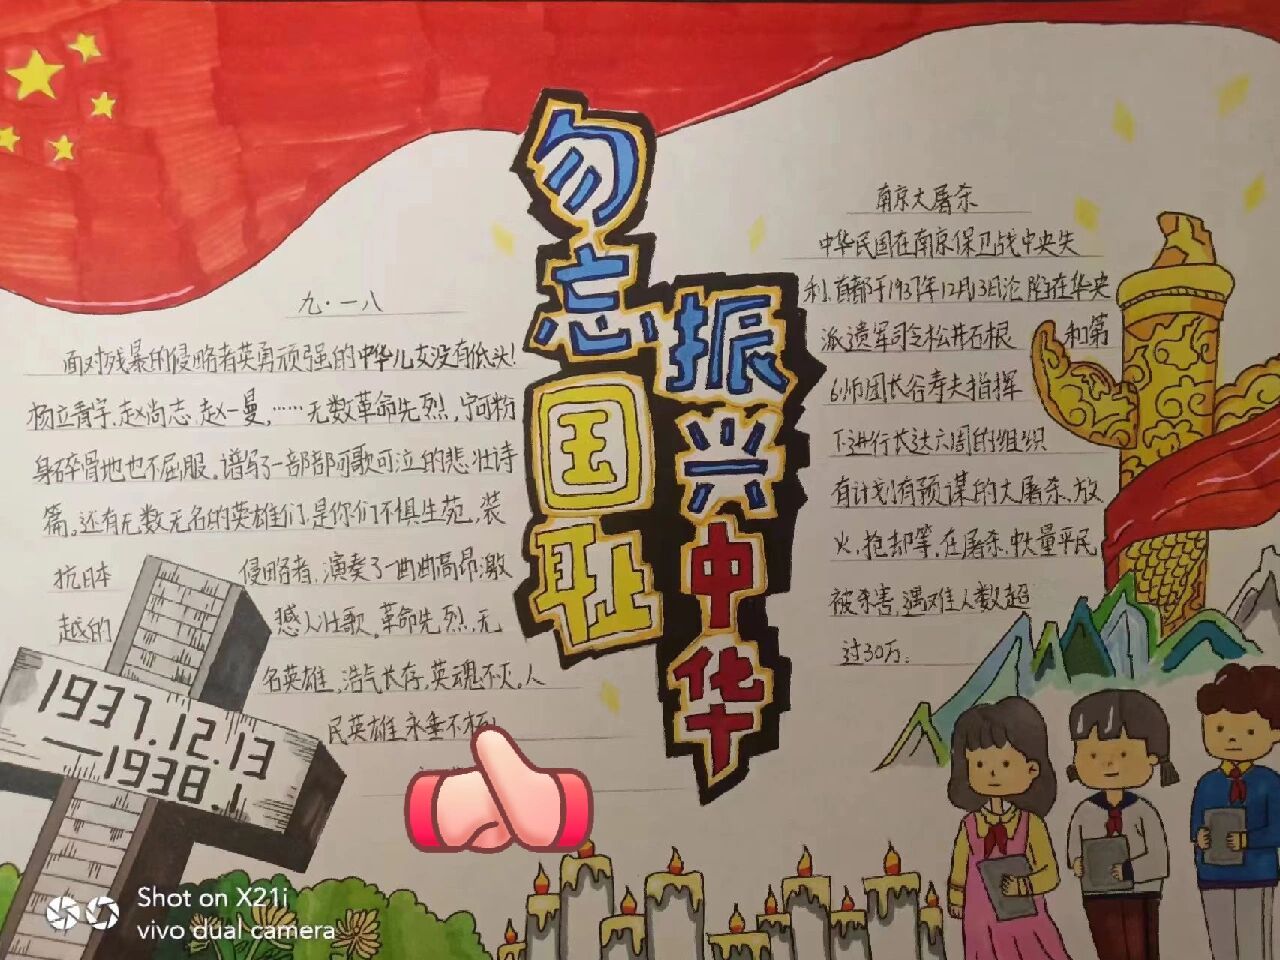 勿忘国耻
振兴中华
九·一八
面对残暴的侵略者英勇顽强的中华儿女没有低头!
杨立青宇.赵尚志.赵一曼,……无数革命先烈,宁可粉
身碎骨地也不屈服。谱写了一部部可歌可泣的悲壮诗
篇。还有无数无名的英雄们是你们不惧生苑,装
抗日本 侵略者,演奏了一曲曲高昂,激
越的 感人壮歌。革命先烈,无
名英雄,浩气长存,英魂不灭。人
民英雄永垂不朽!
南京大屠杀
中华民国在南京保卫战中央失
利.首都于1937年12月13日沦陷在华央
派遣军司令松井石根 和第
6师团长谷寿夫指挥
下进行长达六周的组织
有计划有预谋的大屠杀、放
火,抢却等,在屠杀,中大量平民
被杀害,遇难人数超
过30万.
1937.12.13
—1938.1
Shot on X21i
vivo dual camera